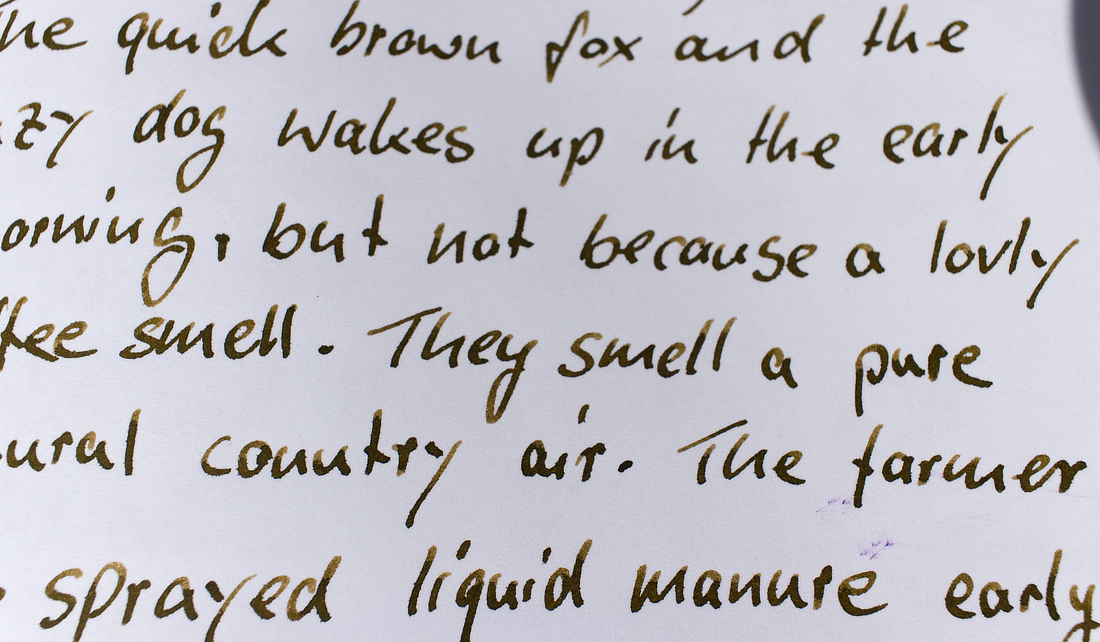 The quick brown fox and the
zy dog wakes up in the early
orning, but not because a lovly
fee smell. They smell a pure
ural country air. The farmer
sprayed liquid manure early